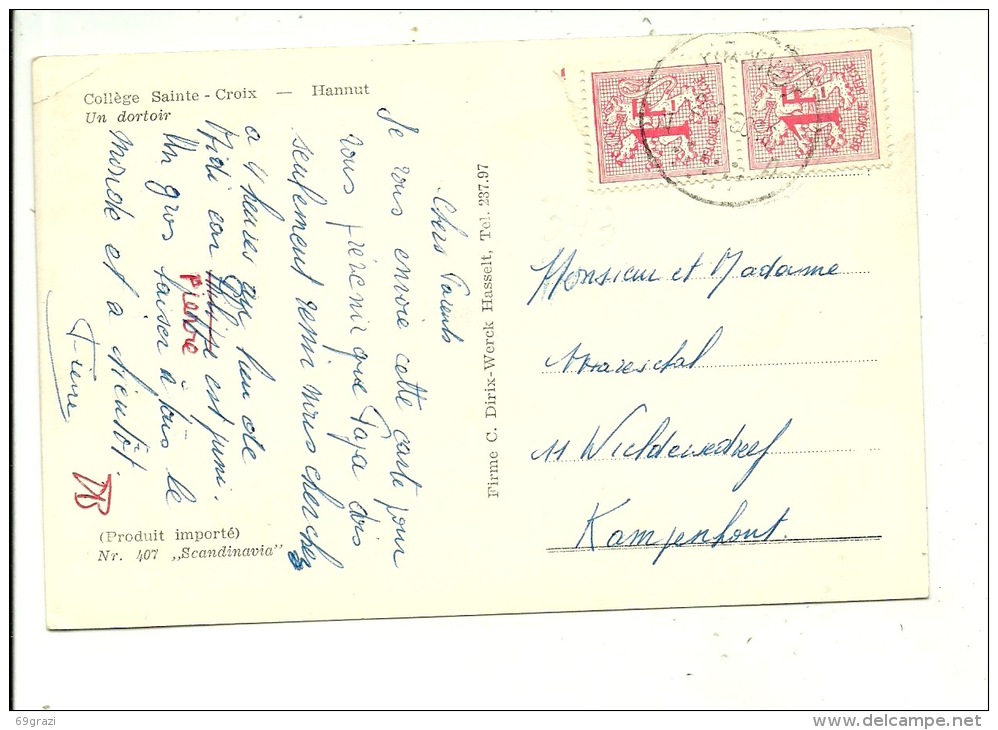 Collège Sainte-Croix — Hannut
Un dortoir
Chers Parents
Je vous envoie cette carte pour
vous prévenir que Papa dois
seulement venir nous cherche
a 4 heures au lieu de
Midi car
pierre
est puni.
Un gros baiser à tous le
monde et a bientôt.
Pierre
(Produit importé)
Nr. 407 „Scandinavia"
Firme C. Dirix-Werck Hasselt, Tel. 237.97
1F
BELGIQUE BELGIE
1F
BELGIQUE BELGIE
Monsieur et Madame
Mareschal
11 Wildewedreef
Kampenhout.
69grazi
delcampe.net